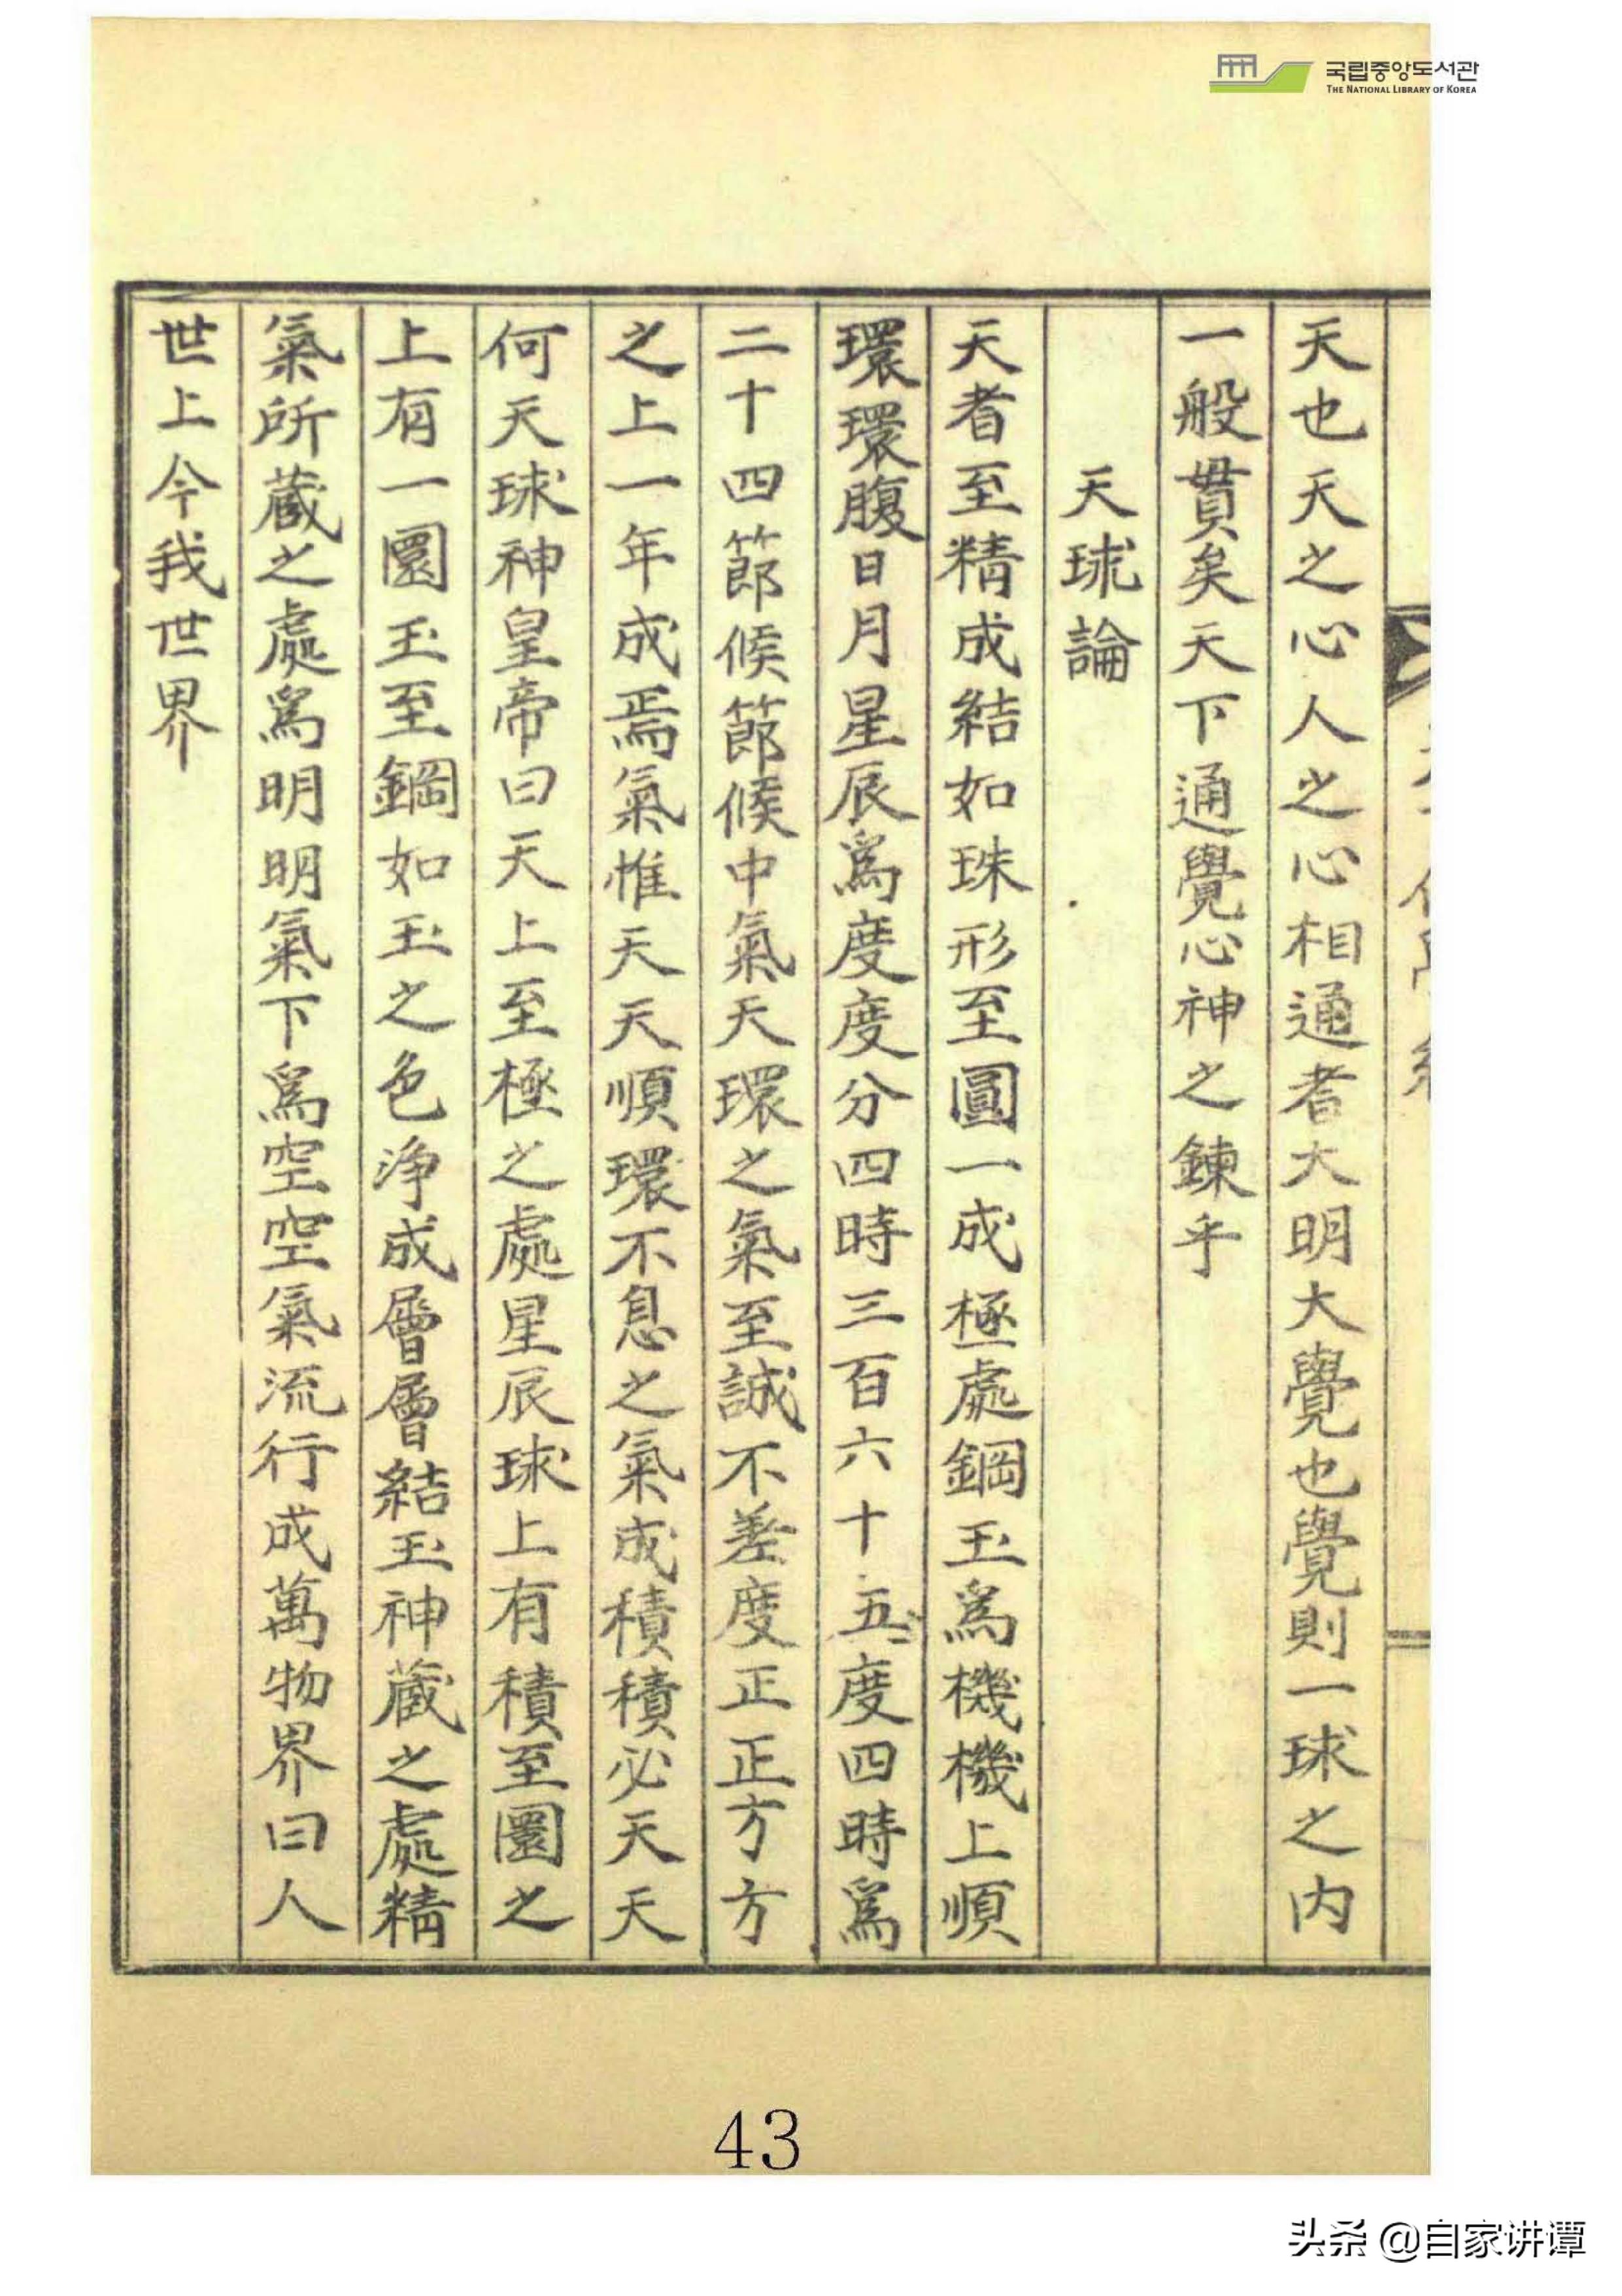 국립중앙도서관
THE NATIONAL LIBRARY OF KOREA
天也天之心人之心相通者大明大覺也覺則一球之內
一般貫矣天下通覺心神之鍊乎
天球論
天者至精成結如珠形至圓一成極處鋼玉爲機機上順
環環腹日月星辰爲度度分四時三百六十五度四時爲
二十四節候節候中氣天環之氣至誠不差度正正方方
之上一年成焉氣惟天天順環不息之氣成積積必天天
何天球神皇帝曰天上至極之處星辰球上有積至圜之
上有一圜玉至鋼如玉之色淨成層層結玉神藏之處精
氣所藏之處爲明明氣下爲空空氣流行成萬物界曰人
世上今我世界
43
头条 @自家讲谭